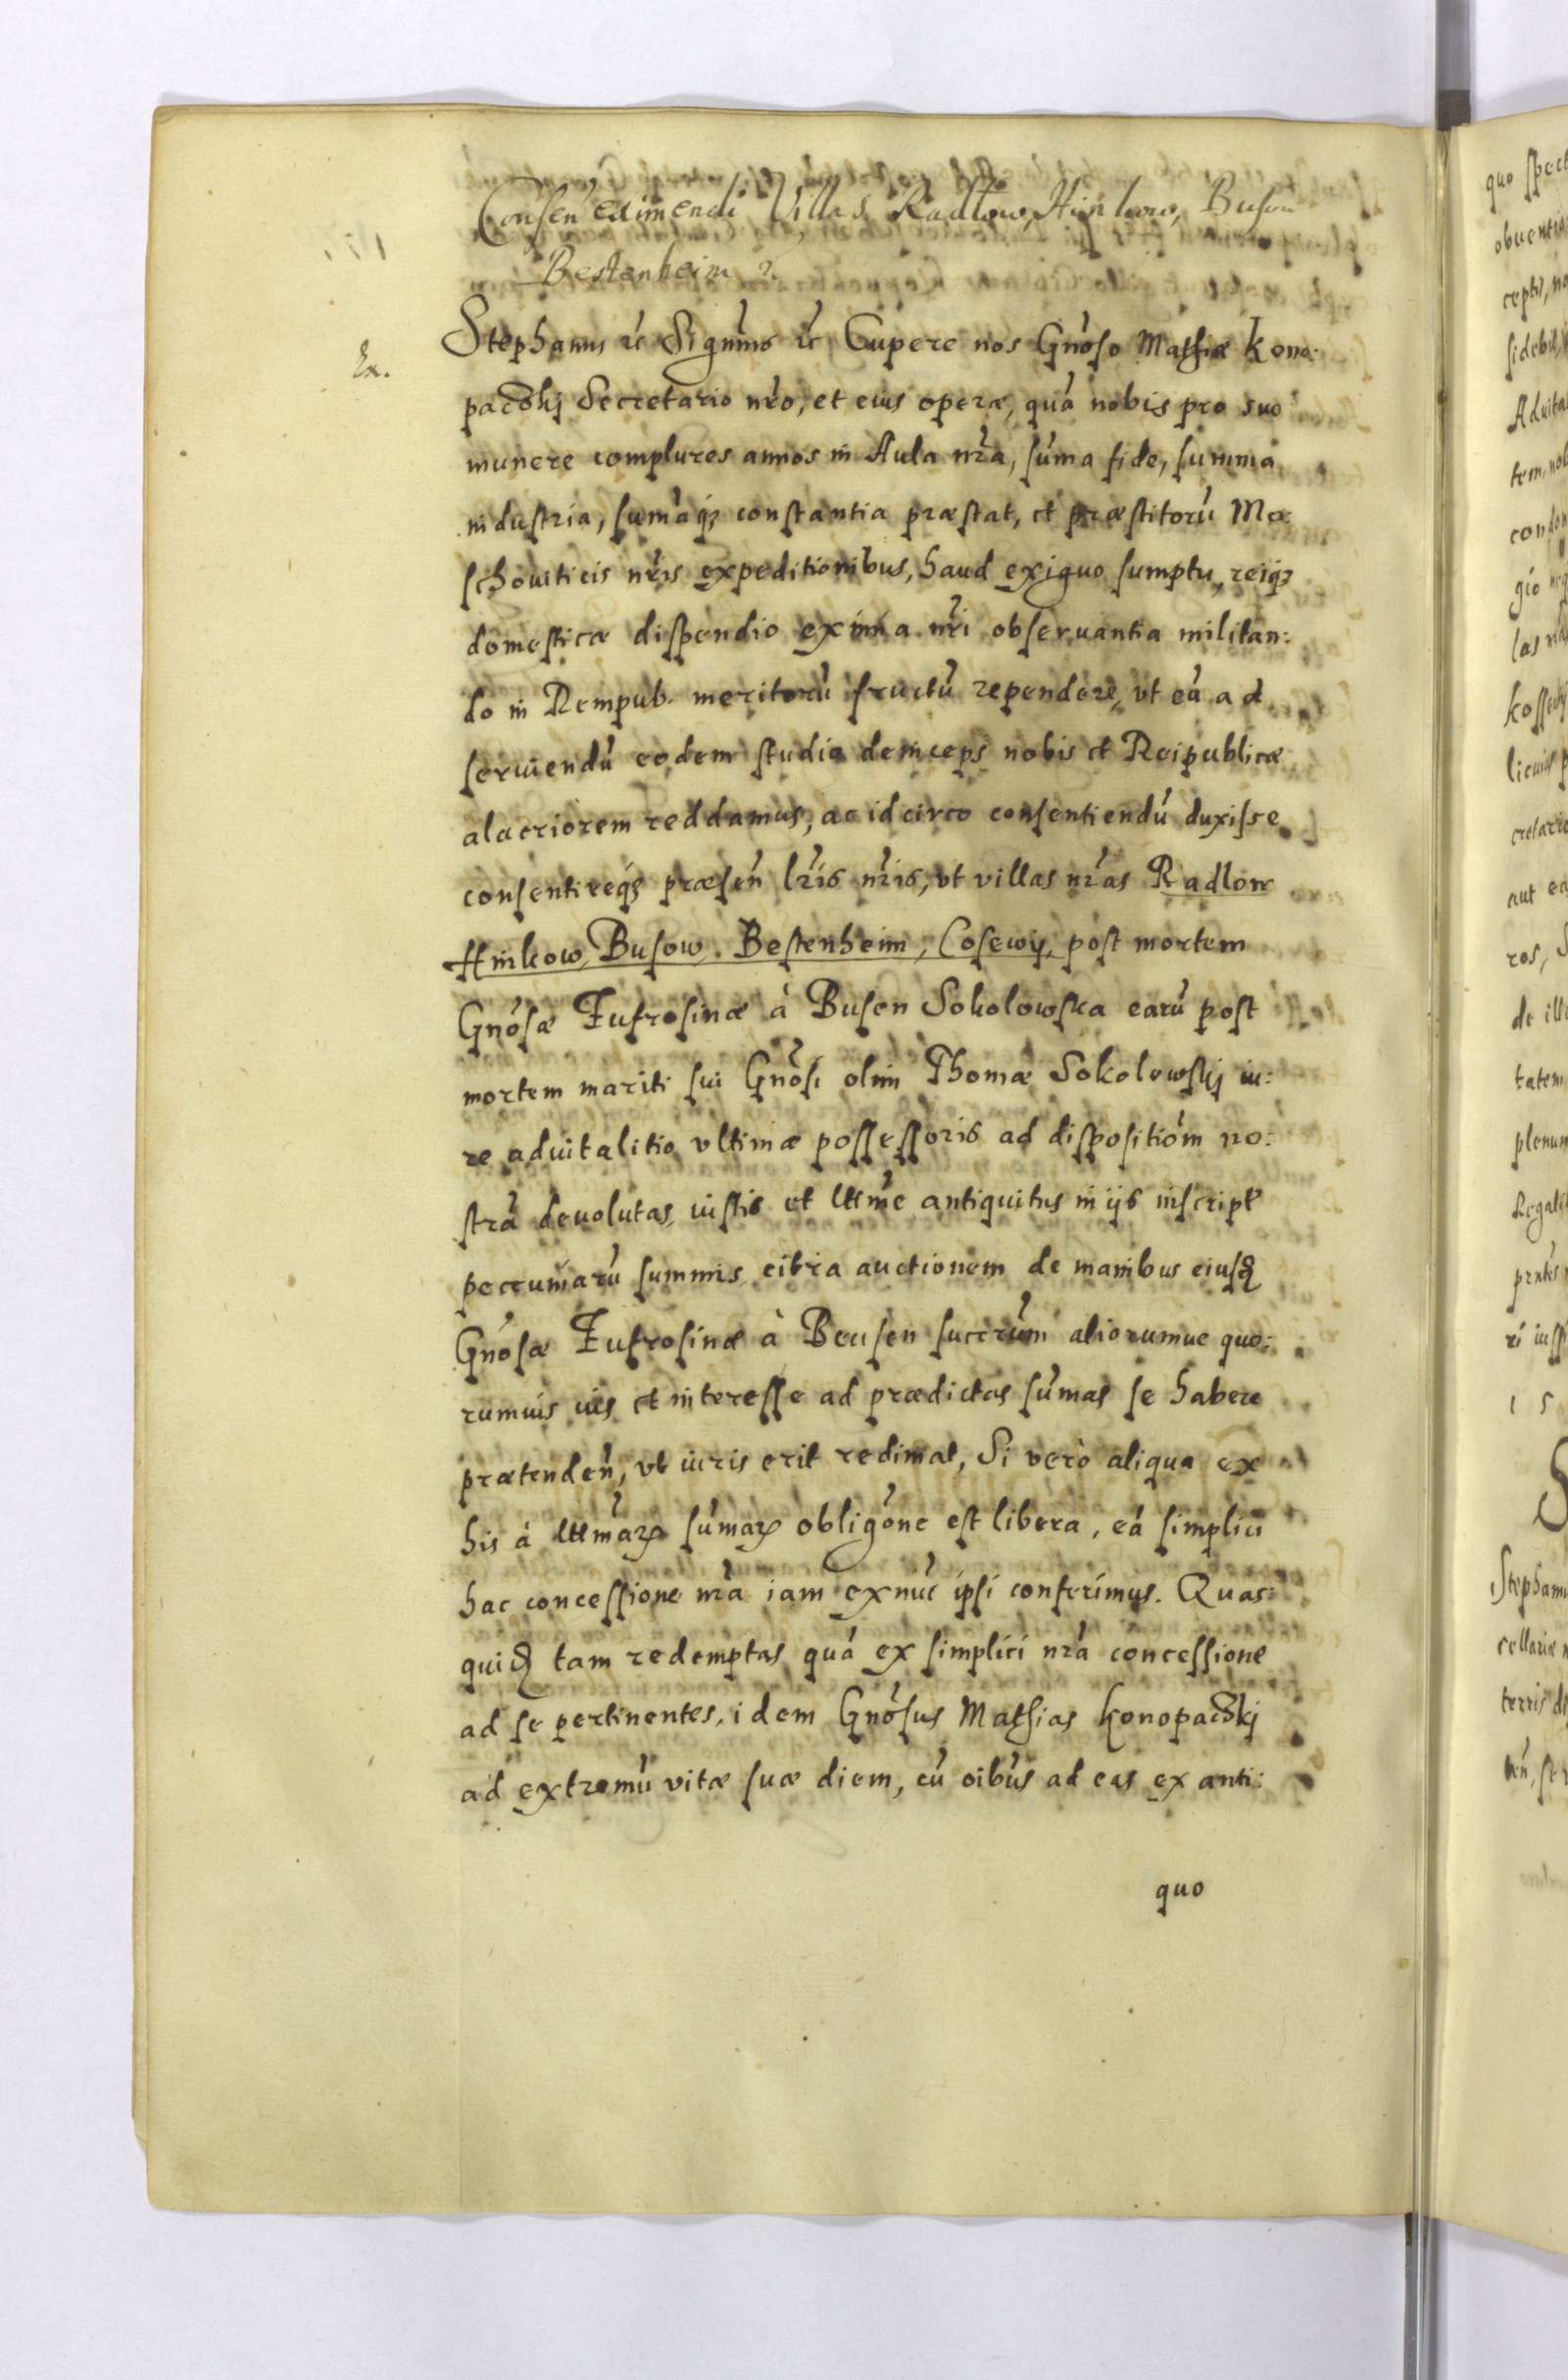 Consen̄ eximendi Villas Radłow, Hinkow, Buson
Bestenheim
Ex.
Stephanus ꝛc Significamus ꝛc Cupere nos Gnõso Mathiæ Kono:
paczki Secretario nr̃o, et eius operæ, quã nobis pro suo
munere complures annos in Aula nr̃a, sũma fide, summa
industria, sum̃aq₃ constantia præstat, et præstitorũ Mo:
schouiticis nr̃is expeditionibus, haud exiguo sumptu, reiq₃
domesticæ dispendio eximia nr̃i obseruantia militan:
do in Rempub. meritorũ fructũ rependere, vt eũ ad
seruiendũ eodem studio deinceps nobis et Reipublicæ
alacriorem reddamus, ac idcirco consentiendũ duxisse
consentireq₃ præsen̄ lr̃is nr̃is, vt villas nr̃as Radlow
Hinkow, Busow, Bestenheim, Cosewy, post mortem
Gnõsæ Eufrosinæ à Busen Sokolowska earũ post
mortem mariti sui Gnõsi olim Thomæ Sokolowskj iu:
re aduitalitio vltimæ possessoris ad dispositiõm no:
strã deuolutas, iustis et lttm̃e antiquitus in ijs inscript̃
pecuniarũ summis, citra auctionem de manibus eiusđ
Gnõsæ Eufrosinæ à Beusen succr̃um aliorumue quo:
rumuis ius et interesse ad prædictas sũmas se habere
prætenden̄, vt iuris erit redimat, Si verò aliqua ex
his à lttm̃aꝝ sũmaꝝ obligõne est libera, eã simplici
hac concessione nr̃a iam exnũc ipsi conferimus. Quas
quiđ tam redemptas quã ex simplici nr̃a concessione
ad se pertinentes, idem Gnõsus Mathias Konopaczkj
ad extremũ vitæ suæ diem, cũ oĩbus ad eas ex anti:
quo